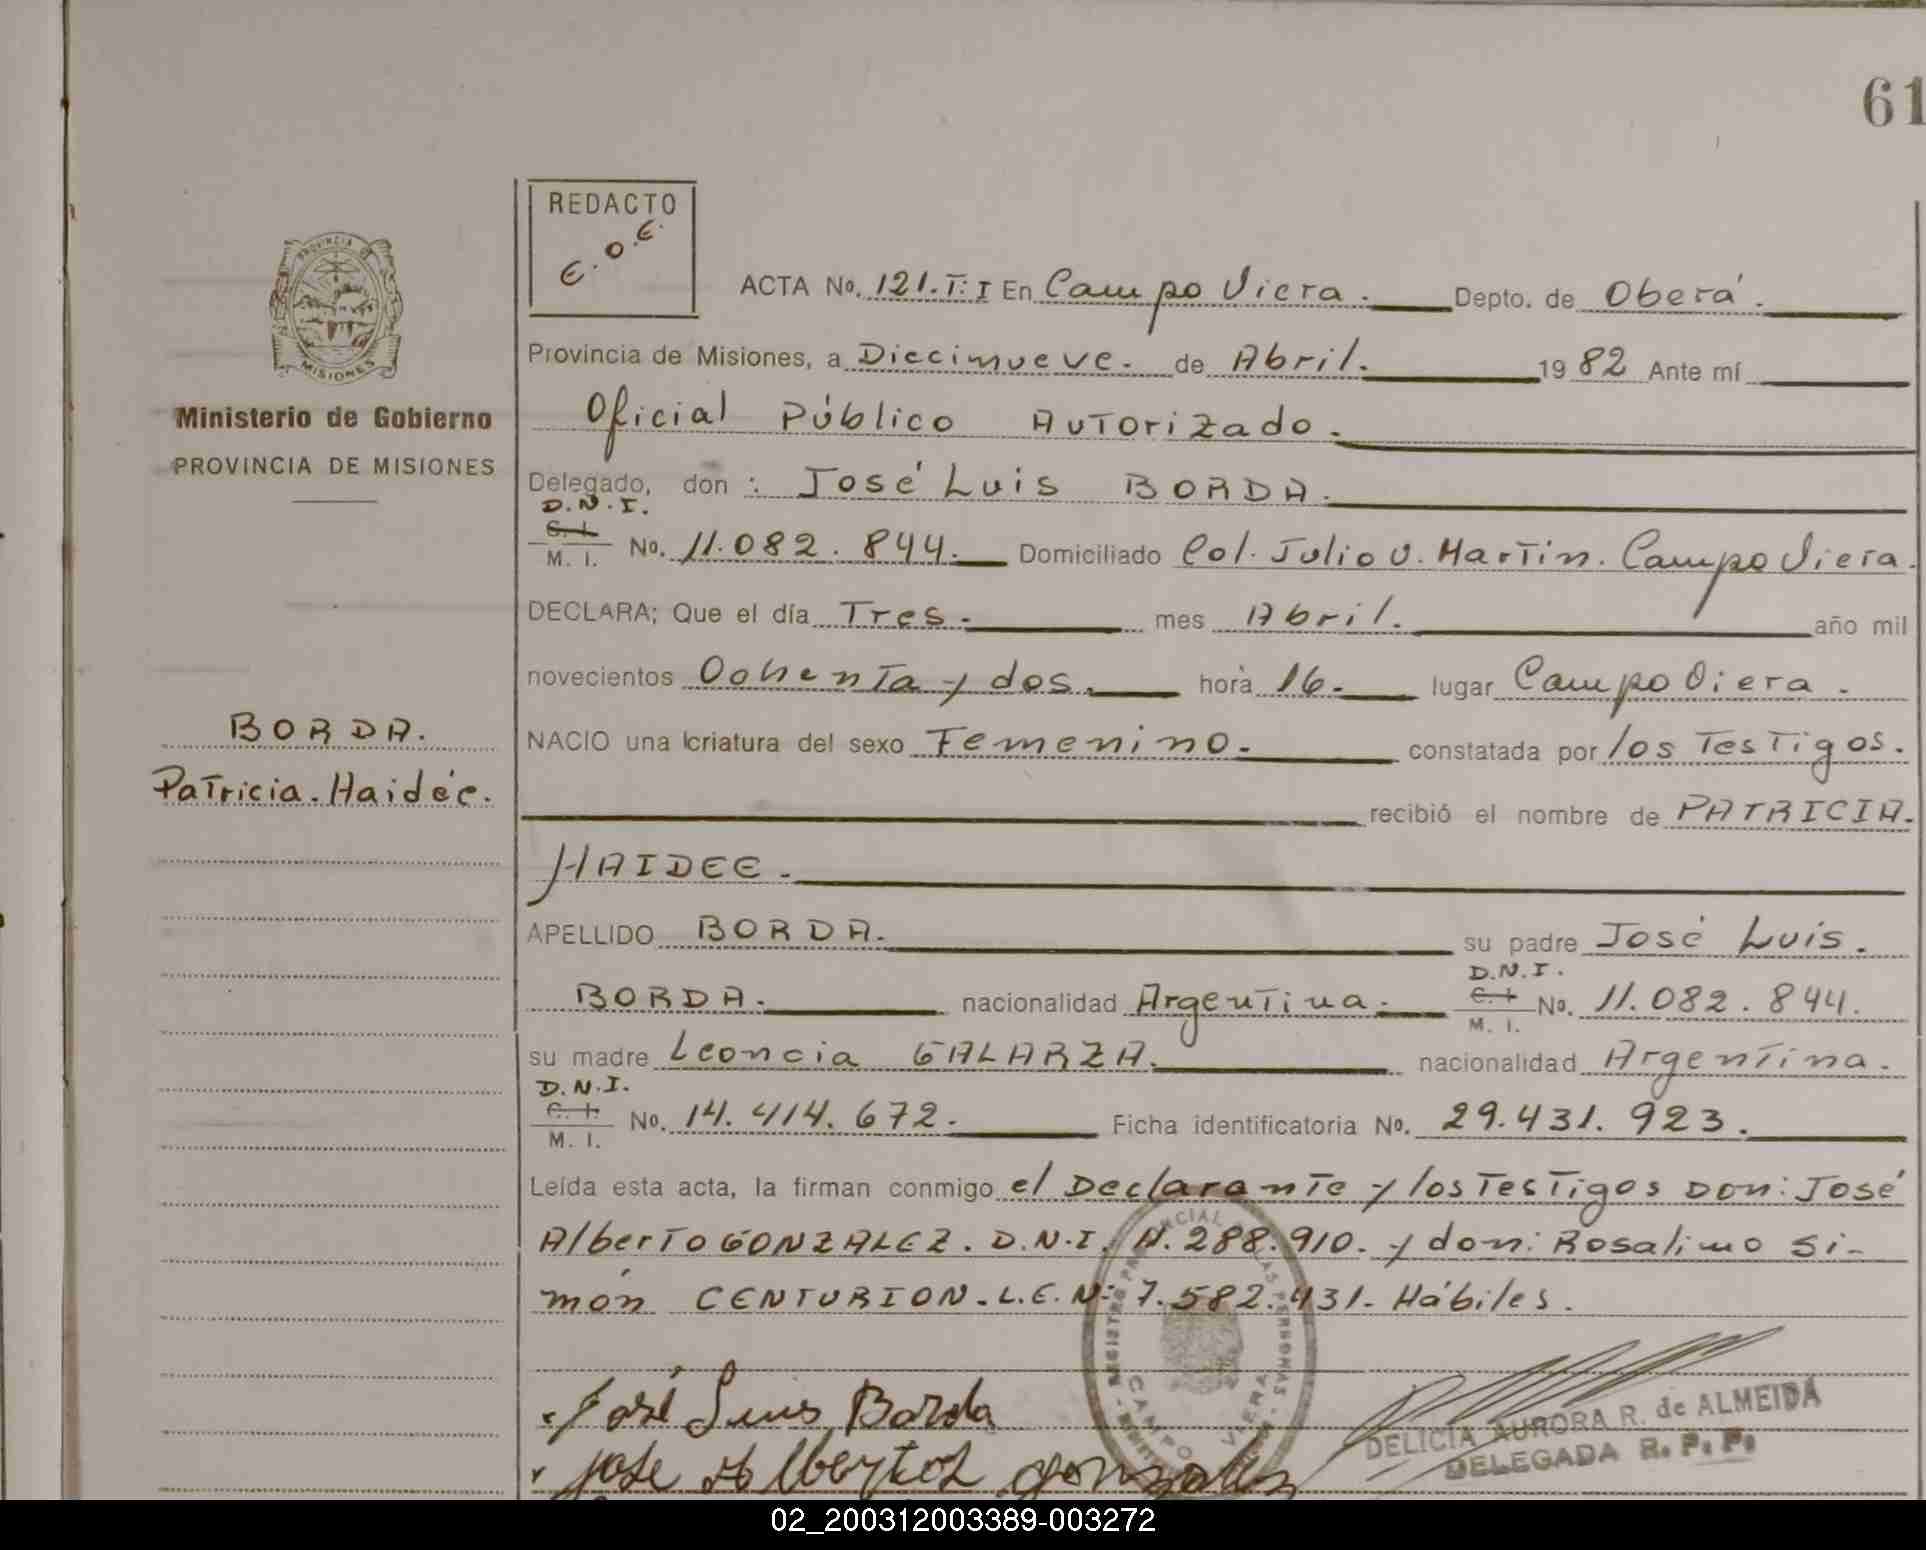 61
REDACTO
E.O.E.
ACTA No. 121.T:I En Campo Viera. Depto. de Oberá.
Provincia de Misiones, a Diecinueve. de Abril. 1982 Ante mí
Oficial Público Autorizado.
Delegado, don : José Luis BORDA.
D.N.I.
C. I.
M. I. No. 11.082.844. Domiciliado Col. Julio U. Martin. Campo Viera.
DECLARA; Que el día Tres. mes Abril. año mil
novecientos Ochenta y dos. hora 16. lugar Campo Viera.
NACIO una criatura del sexo Femenino. constatada por los Testigos.
recibió el nombre de PATRICIA.
HAIDEE.
APELLIDO BORDA. su padre José Luis.
BORDA. nacionalidad Argentina. D.N.I. C. I. M. I. No. 11.082.844.
su madre Leoncia GALARZA. nacionalidad Argentina.
D.N.I.
C. I.
M. I. No. 14.414.672. Ficha identificatoria No. 29.431.923.
Leída esta acta, la firman conmigo el Declarante y los Testigos Don: José
Alberto GONZALEZ. D.N.I. 288.910. y don: Rosalino Si-
món CENTURION. L.E.N: 7.582.431. Hábiles.
José Luis Borda
José Alberto Gonzalez
DELICIA AURORA R. de ALMEIDA
DELEGADA R. P. P.
REGISTRO PROVINCIAL DE LAS PERSONAS
CAMPO VIERA
PROVINCIA DE
MISIONES
Ministerio de Gobierno
PROVINCIA DE MISIONES
BORDA.
Patricia. Haidée.
02_200312003389-003272